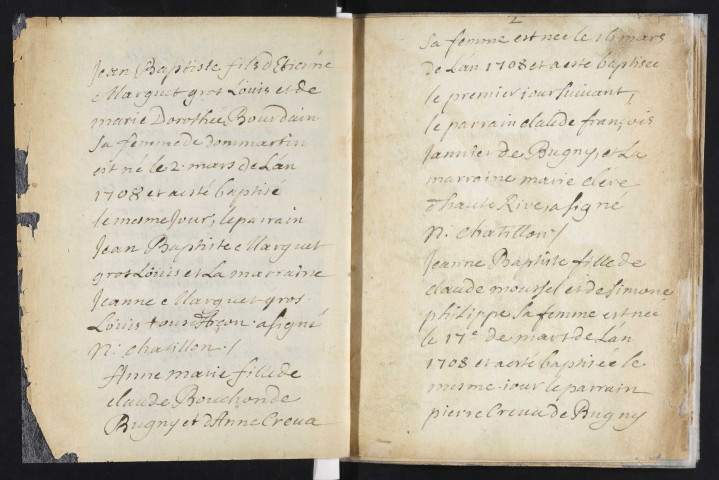 Jean Baptiste fils d'Etiene
Marguet gros Louis et de
marie Dorothée Bourdain
sa femme de dommartin
est né le 2. mars de L'an
1708 et a esté baptisé
le mesme Jour, le parrain
Jean Baptiste Marguet
gros Louis et La marraine
Jeanne Marguet gros
Louis tous d'Arçon. a signé
N: chatillon /
Anne marie fille de
claude Bouchon de
Bugny et d'Anne Creva
2
sa femme est nee le 16 mars
de L'an 1708 et a esté baptisee
le premier iour suivant,
le parrain claude françois
Janvier de Bugny, et La
marraine marie cleve
d'haute Rive, a signé
N: chatillon /
Jeanne Baptiste fille de
claude moussel et de simone
philippe sa femme est née
le 17e de mars de L'an
1708 et a esté baptisée le
mesme iour le parrain
pierre Creva de Bugny